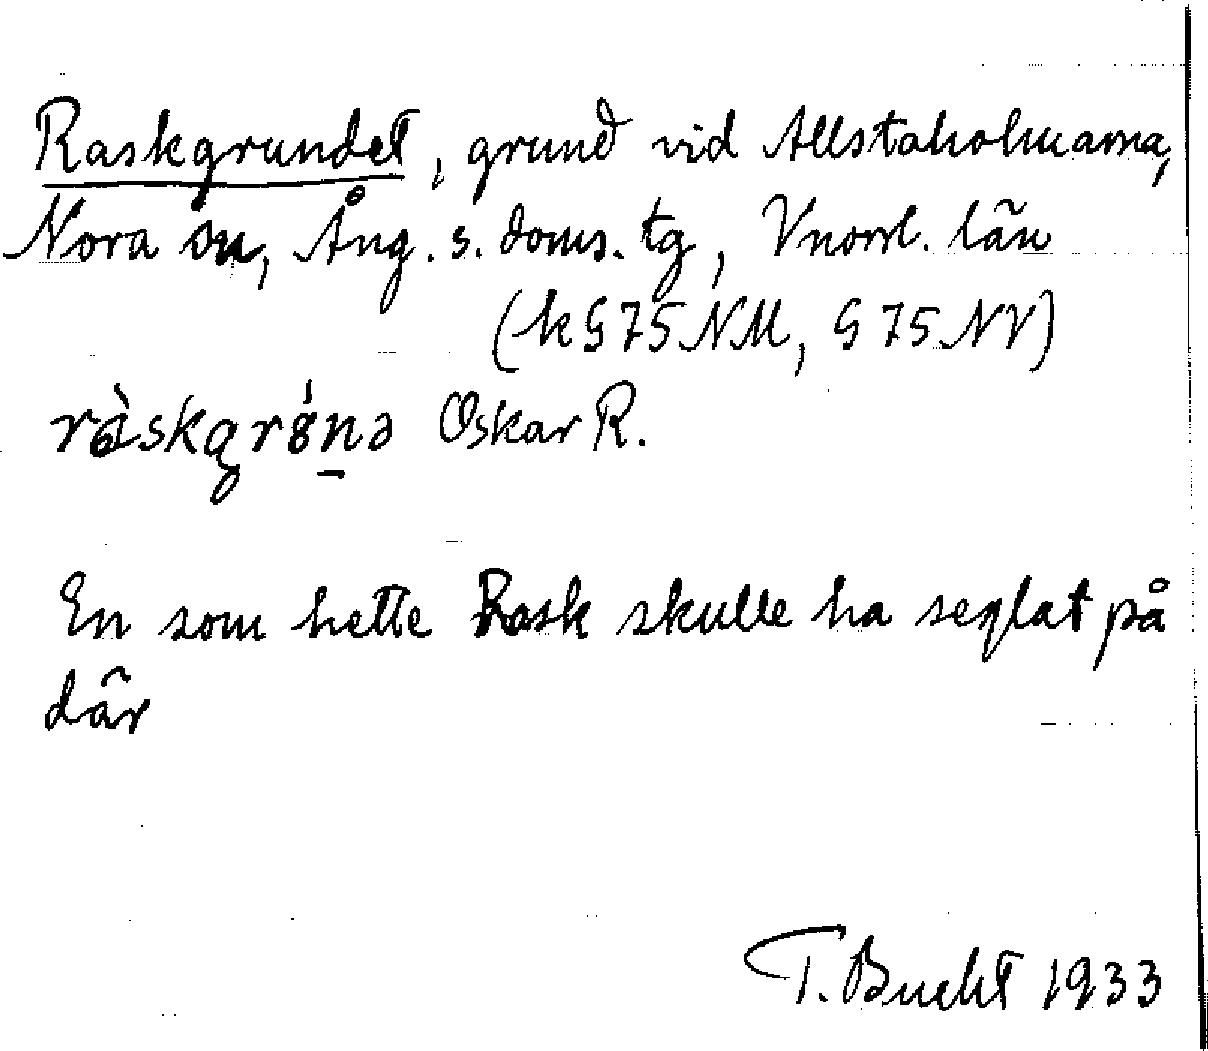 Raskgrundet, grund vid Allstaholmarna,
Nora sn, Ång. s. doms. tg, Vnorrl. län
(k G75 NM, G 75 NV)
ràskgrónə Oskar R.
En som hette Rask skulle ha seglat på
där
T. Bucht 1933